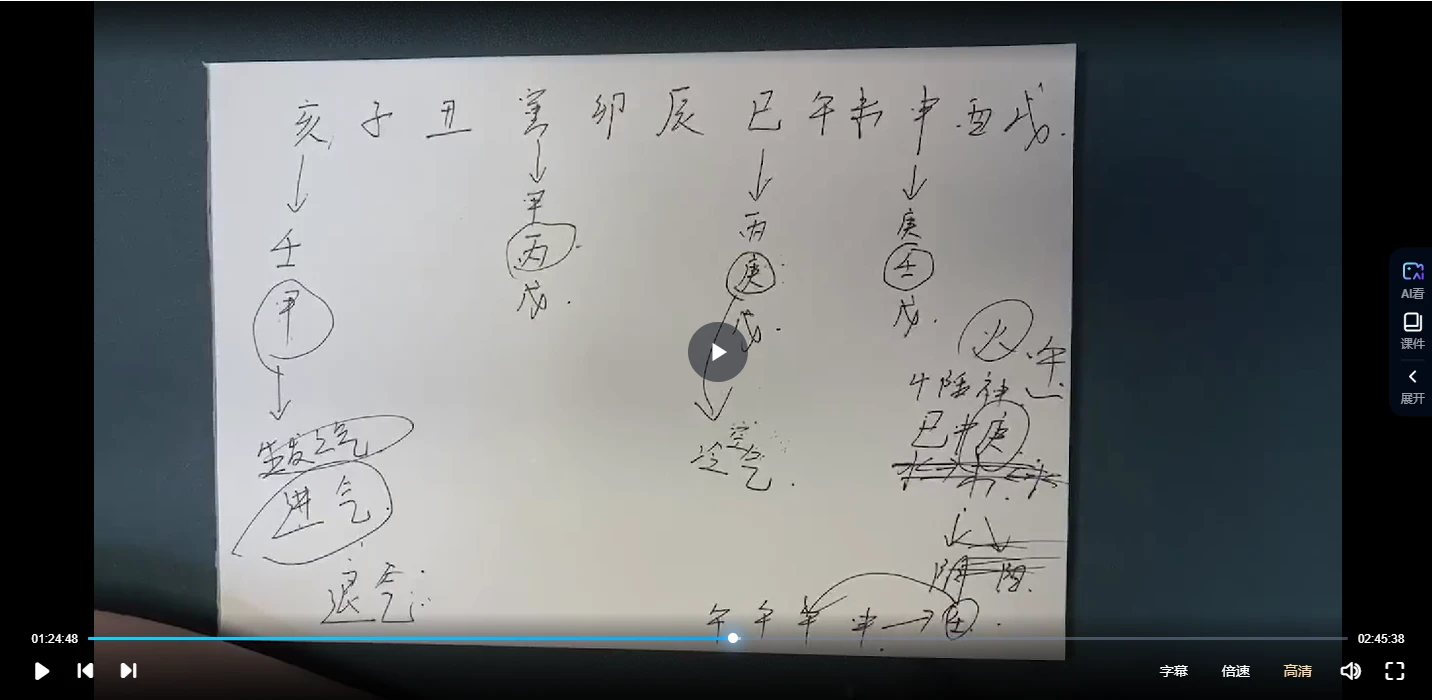 亥 子 丑 寅 卯 辰 巳 午 未 申 酉 戌
壬
甲
生发之气
进气
退气
甲
丙
戊
丙
庚
戊
空
冷气
庚
壬
戊
火
午
阳神
巳中庚
水
阴 阳
午 午
申
壬
AI看
课件
展开
01:24:48
02:45:38
字幕
倍速
高清